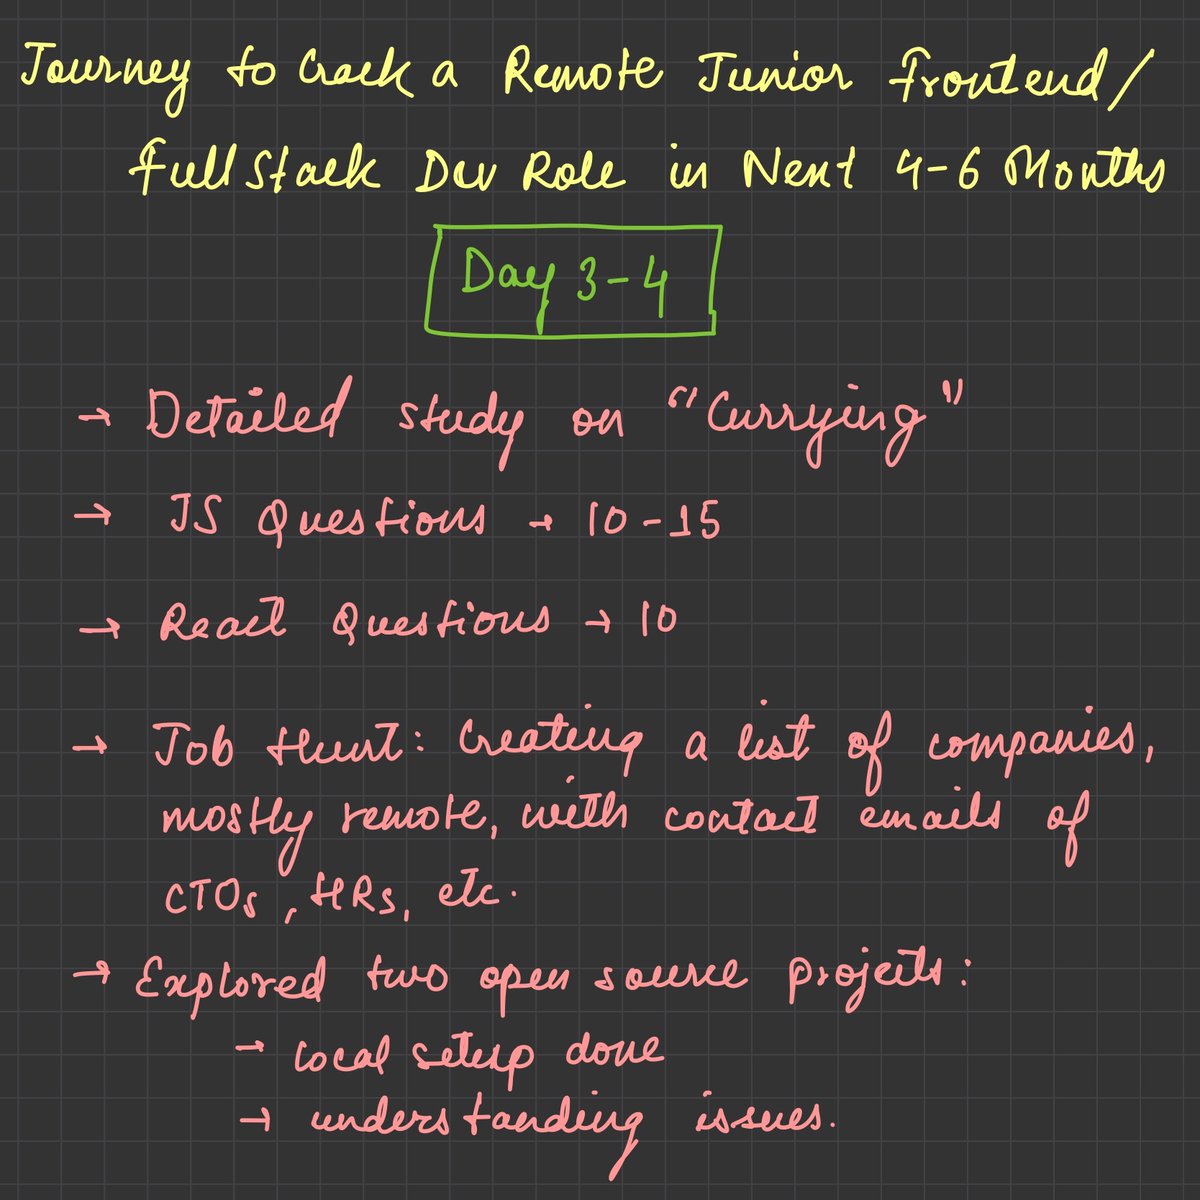 Journey to Crack a Remote Junior Frontend/
FullStack Dev Role in Next 4-6 Months
Day 3-4
→ Detailed study on "Currying"
→ JS Questions → 10-15
→ React Questions → 10
→ Job Hunt: Creating a list of companies,
mostly remote, with contact emails of
CTOs, HRs, etc.
→ Explored two open source projects:
→ local setup done
→ understanding issues.